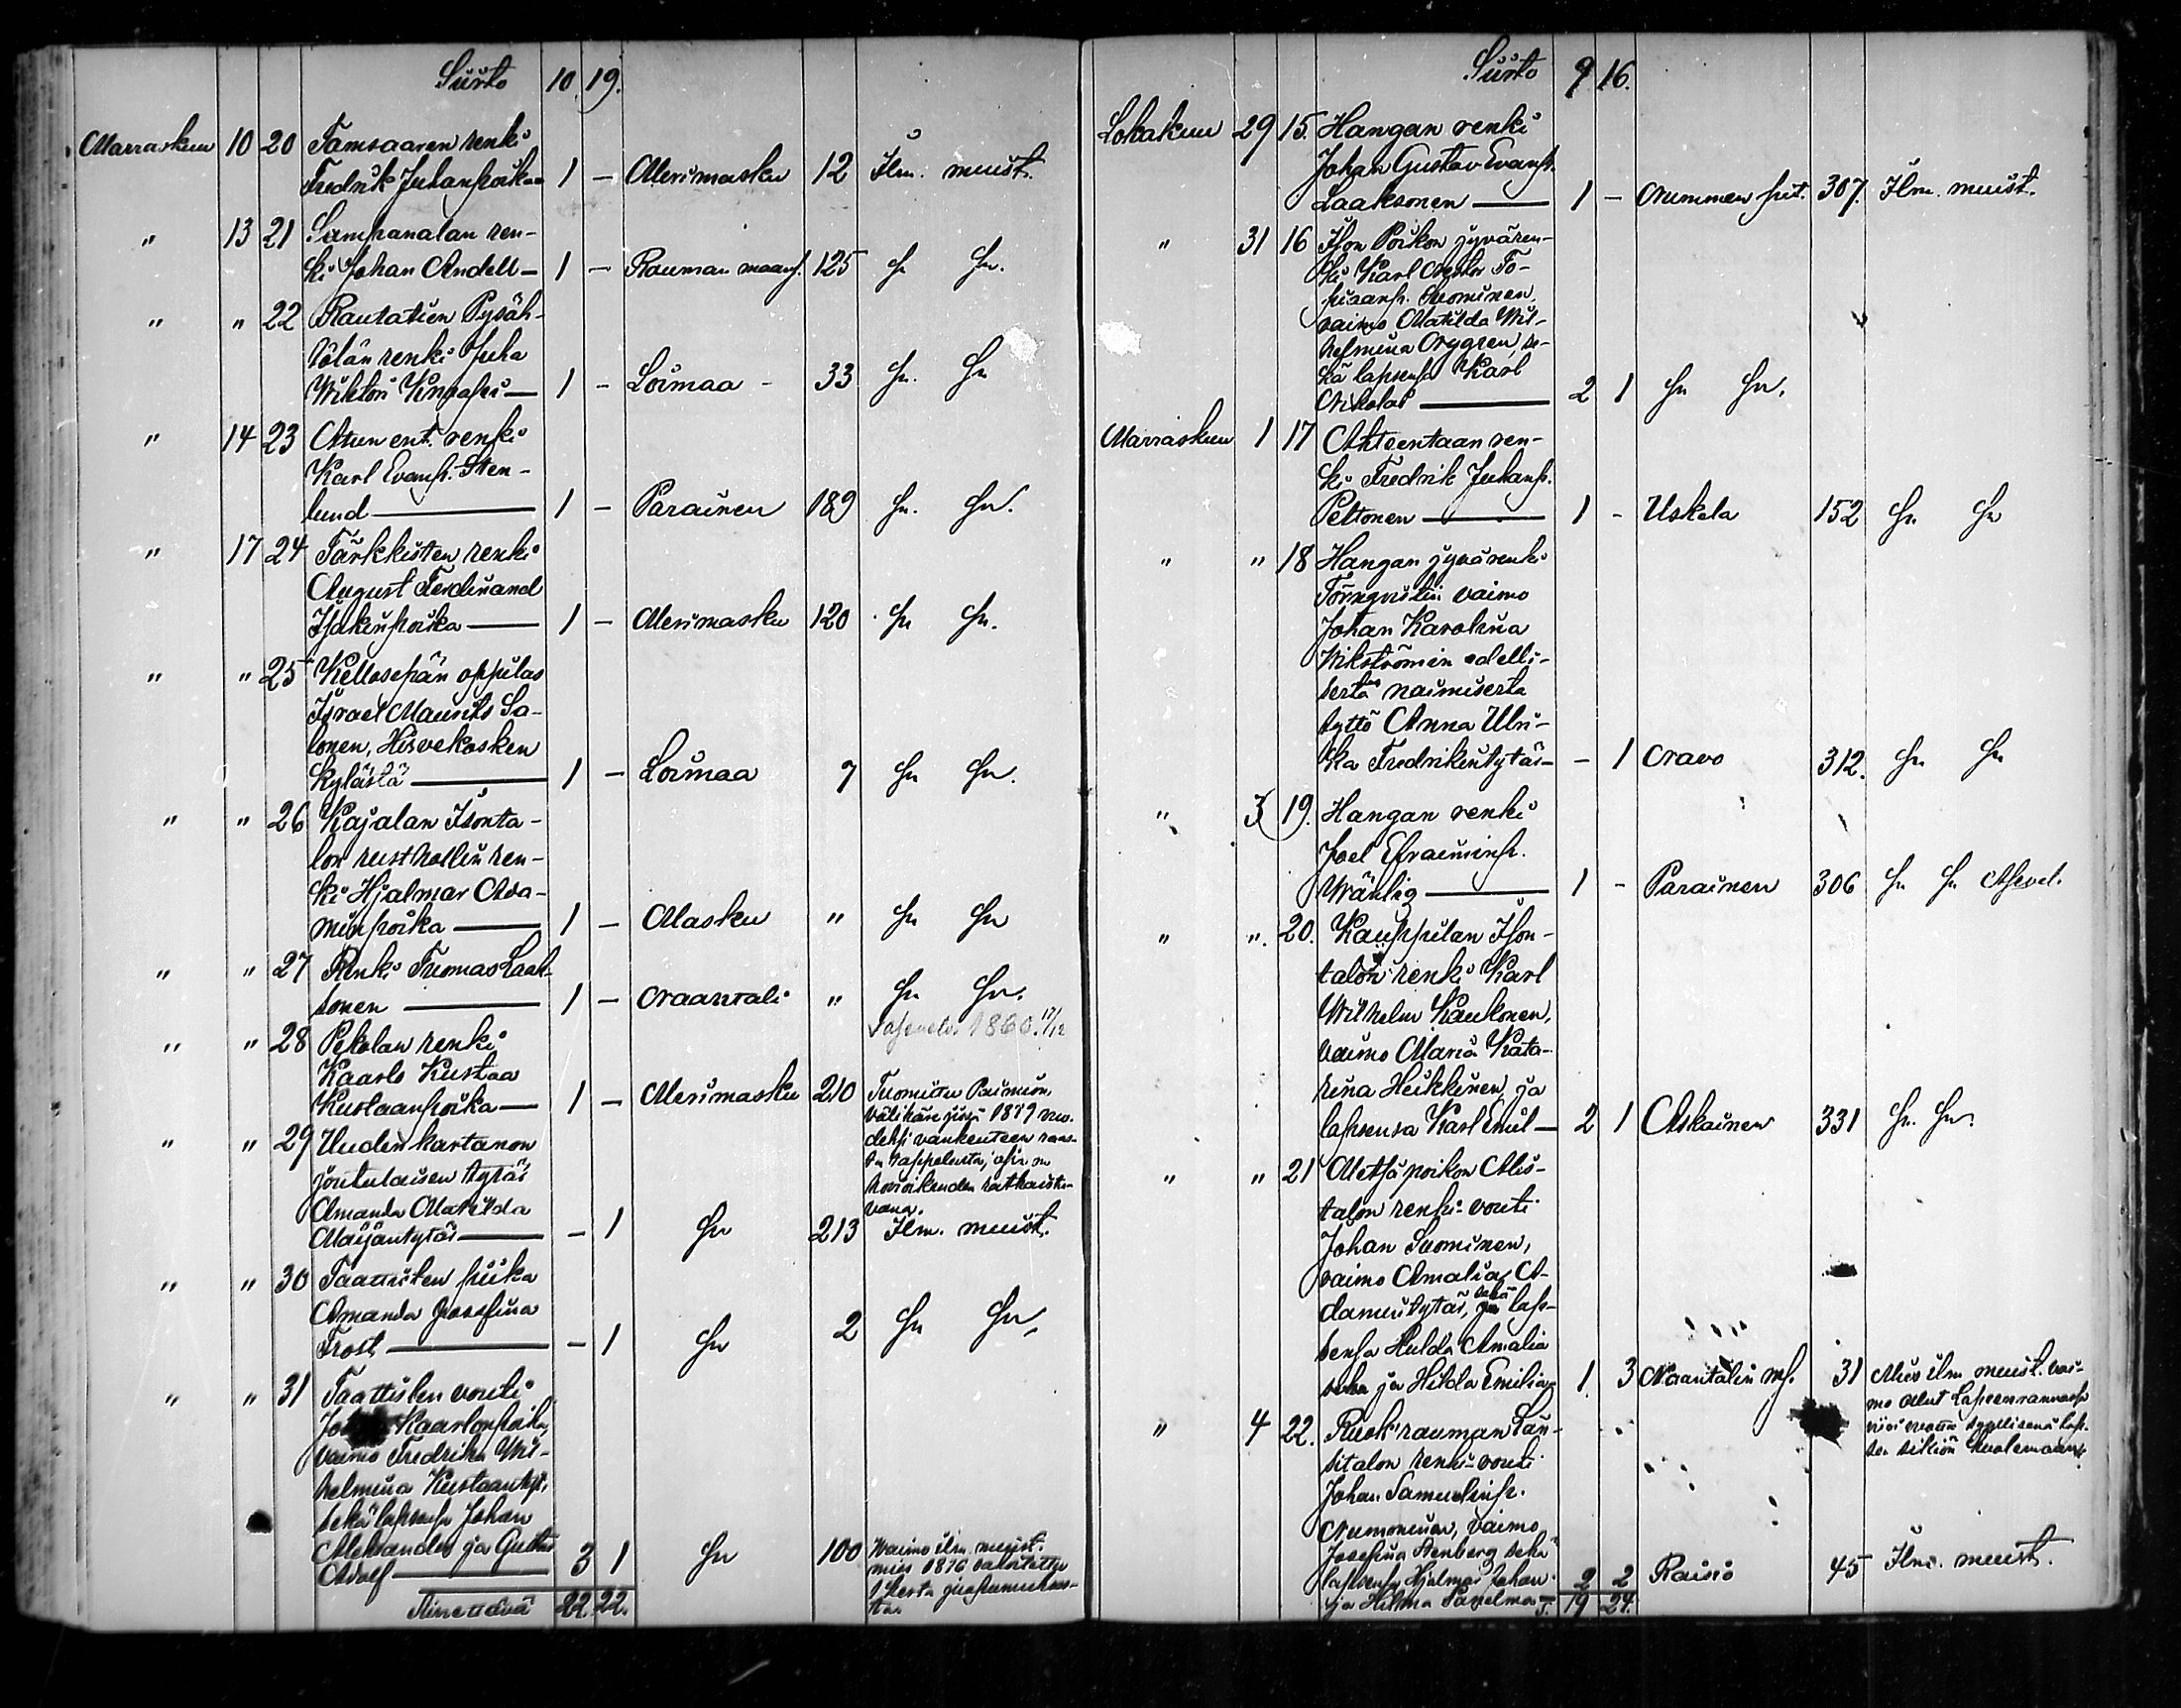 Siirto 10 19.
Marraskuu 10 20 Tamsaaren renki
Fredrik Juhanpoika 1 – Merimasku 12 Ilm. muist.
" 13 21 Sampanalan ren-
ki Johan Andell – 1 – Rauman maas. 125 Sn Sn.
" " 22 Rautatien Pysäh-
renki Juha
Wiktor 1 – Loimaa – 33 Sn. Sn
" 14 23 renki
Karl Evanp. Sten-
lund 1 – Parainen 189 Sn. Sn.
" 17 24 Tärkkisten renki
August Ferdinand
Isakinpoika 1 – Merimasku 120 Sn Sn.
" " 25 Kellosepän oppilas
Israel Maurits Sa-
lonen, Hirvekosken
kylästä 1 – Loimaa 7 Sn Sn.
" " 26 Kajalan Isonta-
lon rusthollin ren-
ki Hjalmar Ada-
minpoika 1 – Masku " Sn Sn
" " 27 Renki Tuomas Laak-
sonen 1 – Naantali " Sn Sn.
1860. 17/12
" " 28 Pekolan renki
Kaarlo Kustaa
Kustaanpoika 1 – Merimasku 210 Tuomittu Paimion
välikäräjissä 1879
vankeuteen
taposta,
hovioikeuden
" " 29 Uudenkartanon
tytär
Amanda Matilda
Maijantytär – 1 Sn 213 Ilm. muist.
" " 30 Taattisten piika
Amanda Josefina
Frost – 1 Sn 2 Sn Sn,
" " 31 Taattisten vouti
Kaarlonpoika,
vaimo Fredrika Wil-
helmina Kustaant.,
sekä lapsensa Johan
Aleksander ja Gustav
Adolf 3 1 Sn 100 Waimo ilm. muist.
mies 1876 sakotettu
1 kerta juopumukses-
ta.
Siirrettävä 22. 22.
Siirto 9 16.
Lokakuu 29 15. Hangan renki
Johan Gustav Evanp.
Laaksonen 1 – Nummen pit. 307. Ilm. muist.
" 31 16 Ison Poikon jyvären-
ki Karl Nestor To-
piaanp. Nuominen,
vaimo Matilda Wil-
helmina Nygren, se-
kä lapsensa Karl
Nikolai 2 1 Sn Sn.
Marraskuu 1 17 Ahteentaan ren-
ki Fredrik Juhanp.
Peltonen 1 – Uskela 152 Sn Sn
" " 18 Hangan jyvärenki
Törnqvistin vaimo
Johan Karolina
Wikströmin edelli-
sestä naimisesta
tyttö Anna Ulri-
ka Fredrikintytär – 1 Navo 312. Sn Sn
" 3 19. Hangan renki
Joel Efraiminp.
1 – Parainen 306 Sn Sn
" " 20. Kauppilan Ison-
talon renki Karl
Wilhelm Kaukonen,
vaimo Maria Kata-
rina Heikkinen, ja
lapsensa Karl Emil – 2 1 Askainen 331 Sn. Sn.
" " 21 Metsäpoikon Alis-
talon renki-vouti
Johan Suominen,
vaimo Amalia A-
damintytär, sekä lap-
sensa Hulda Amalia
ja Hilda Emilia 1 3 Naantalin mp. 31 Mies ilm muist. vai-
mo ollut Lapeenrannassa
syyllisenä lap-
sen kuolemaan.
" 4 22. Ruokrauman Län-
sitalon renki-vouti
Johan Samuelinp.
Numminen, vaimo
Josefina Stenberg sekä
lapsensa Hjalmar Johan
ja Hilma 2 2 Raisio 45 Ilm. muist.
S. 19 24.